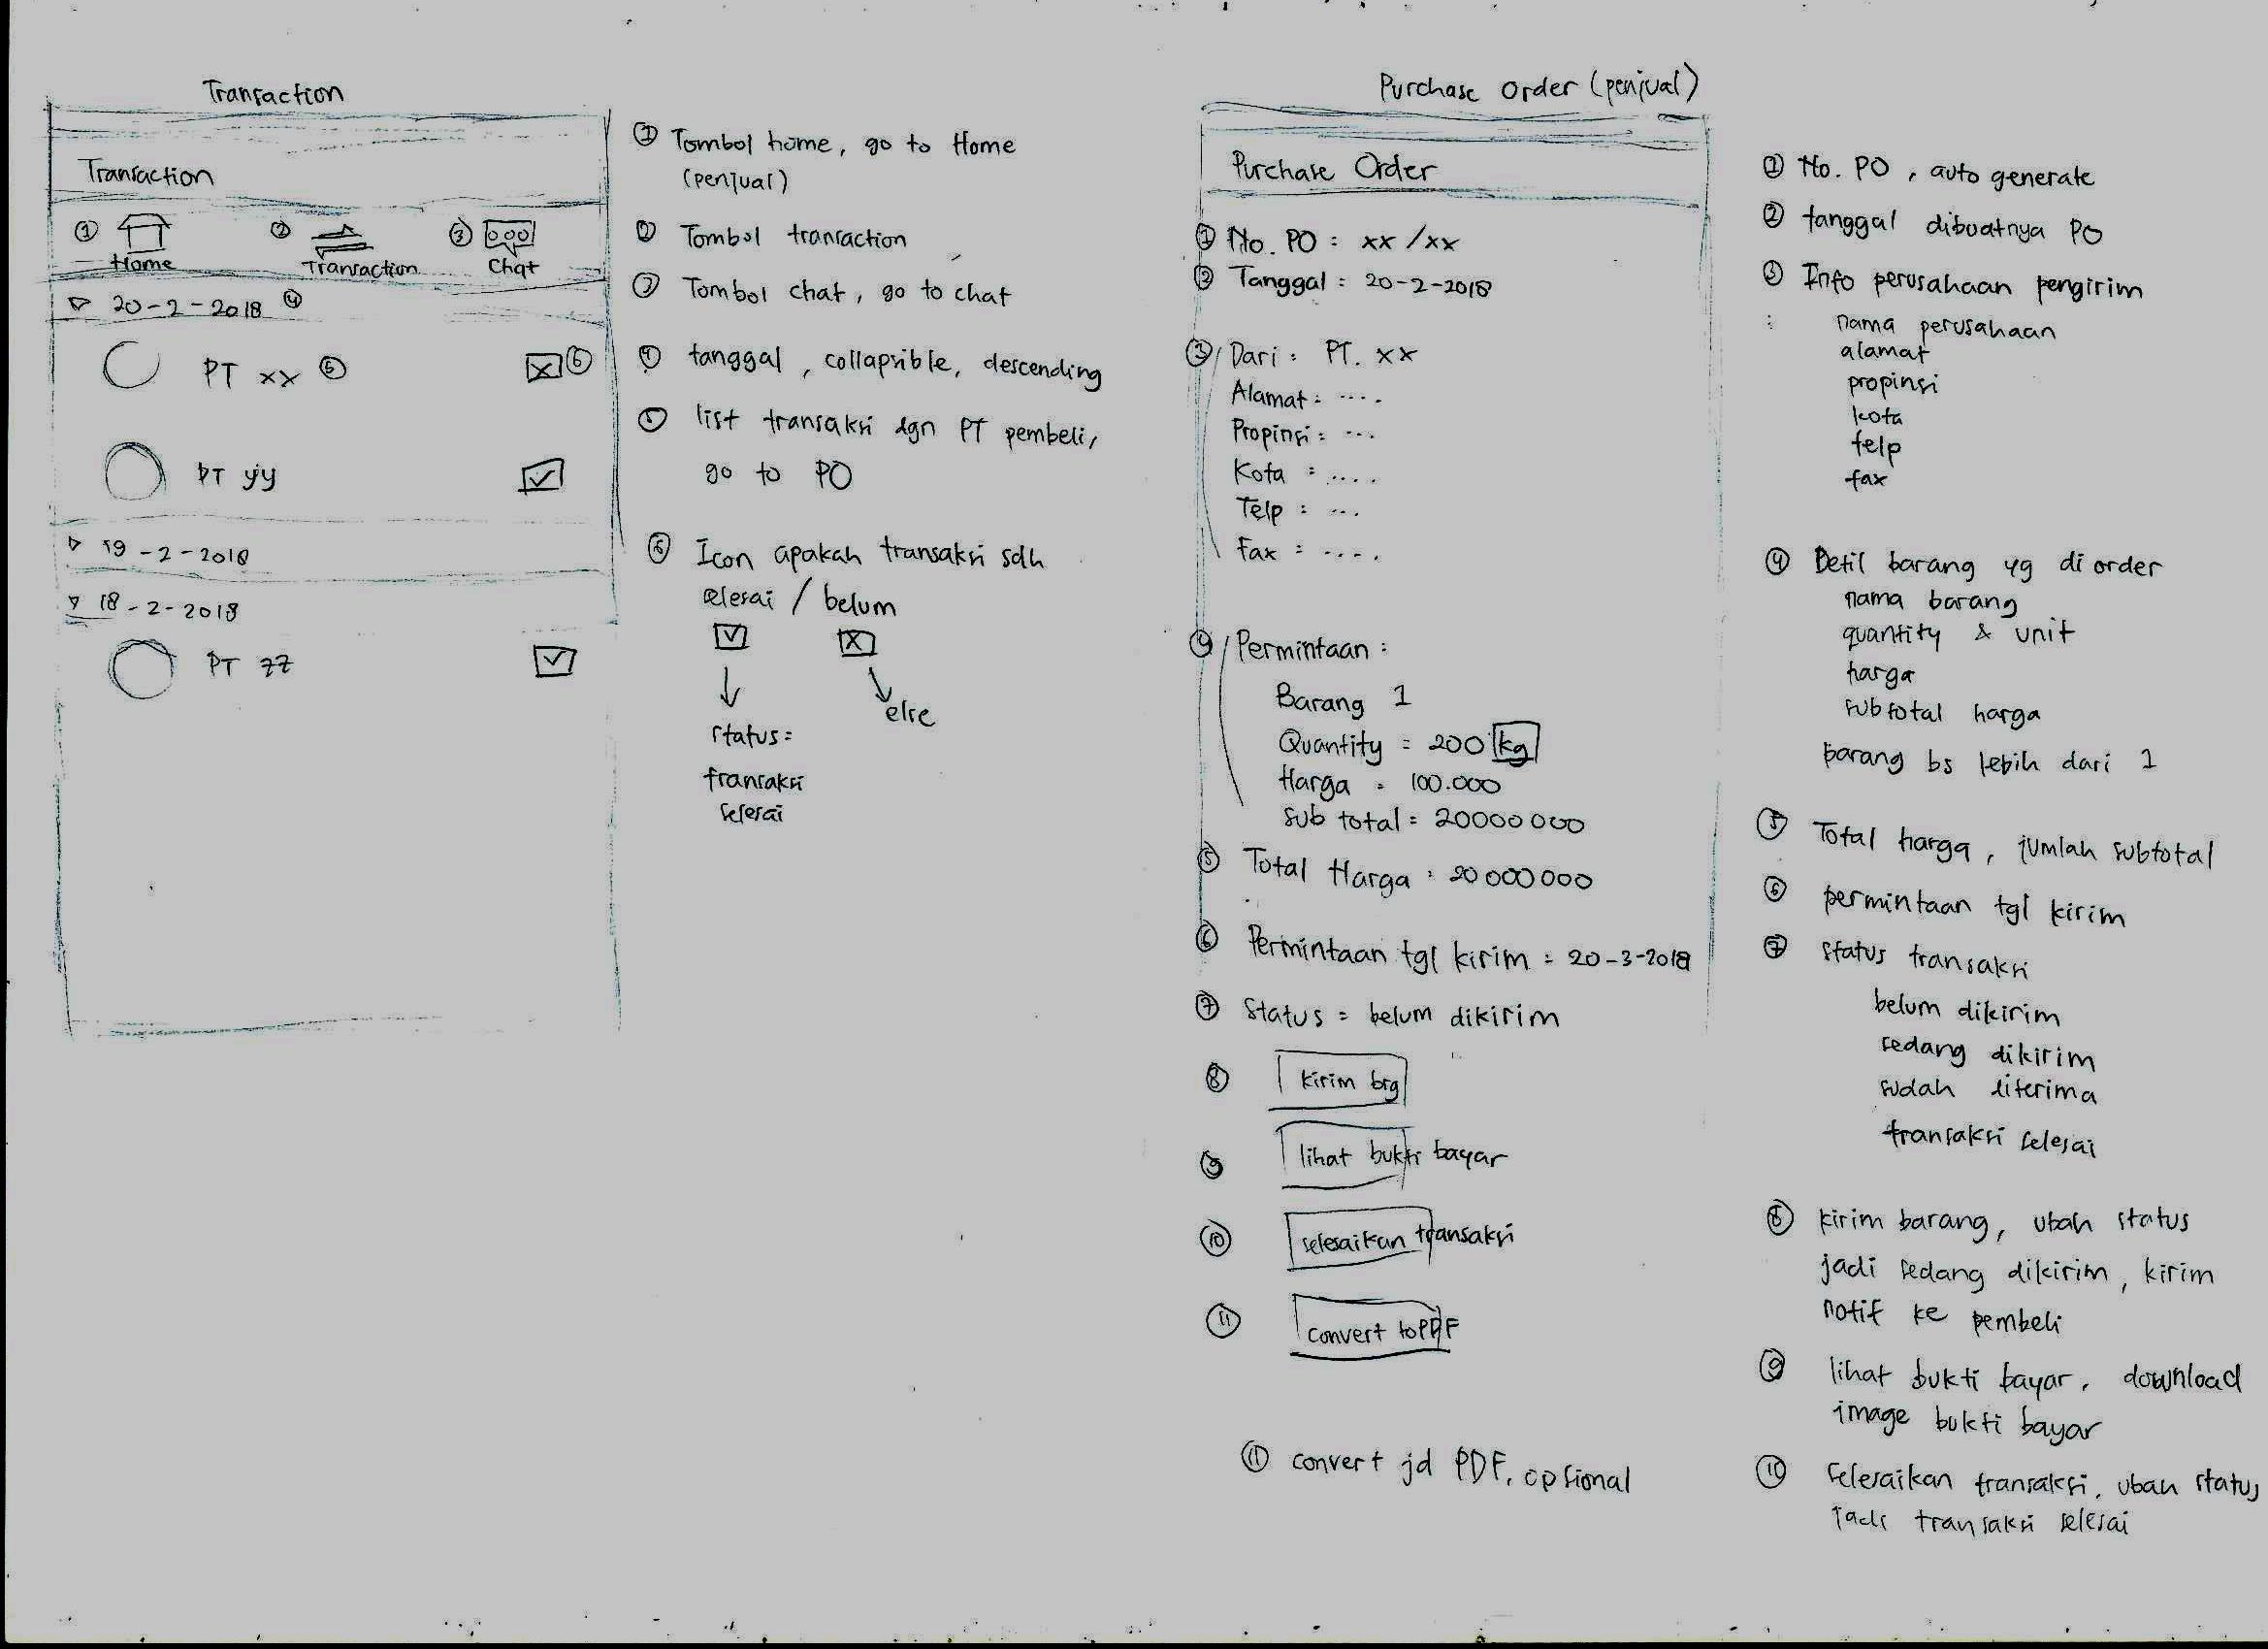 Transaction
Transaction
① Home
② Transaction
③ Chat
20-2-2018 ④
PT xx ⑤ ⑥
PT yy
19-2-2018
18-2-2018
PT zz
① Tombol home, go to Home
(penjual)
② Tombol transaction
③ Tombol chat, go to chat
④ tanggal, collapsible, descending
⑤ list transaksi dgn PT pembeli,
go to PO
⑥ Icon apakah transaksi sdh
selesai / belum
else
status =
transaksi
selesai
Purchase Order (penjual)
Purchase Order
① No. PO : xx /xx
② Tanggal : 20-2-2018
③ Dari : PT. xx
Alamat : ....
Propinsi : ...
Kota : ....
Telp : ...
Fax : ....
④ Permintaan :
Barang 1
Quantity = 200 kg
Harga = 100.000
Sub total = 20000000
⑤ Total Harga : 20000000
⑥ Permintaan tgl kirim = 20-3-2018
⑦ Status = belum dikirim
⑧ kirim brg
⑨ lihat bukti bayar
⑩ selesaikan transaksi
⑪ convert to PDF
⑪ convert jd PDF, opsional
① No. PO, auto generate
② tanggal dibuatnya PO
③ Info perusahaan pengirim
: nama perusahaan
alamat
propinsi
kota
telp
fax
④ Detil barang yg di order
nama barang
quantity & unit
harga
subtotal harga
barang bs lebih dari 1
⑤ Total harga, jumlah subtotal
⑥ permintaan tgl kirim
⑦ status transaksi
belum dikirim
sedang dikirim
sudah diterima
transaksi selesai
⑧ kirim barang, ubah status
jadi sedang dikirim, kirim
notif ke pembeli
⑨ lihat bukti bayar, download
image bukti bayar
⑩ selesaikan transaksi, ubah status
jadi transaksi selesai